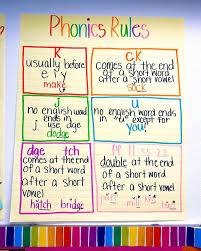 Phonics Rules
k
usually before
e i y
make
ck
comes at the end
of a short word
after a short vowel
stick
j
no english word
ends in
j use dge
dodge
u
no english word ends
in "u" except for
you!
dge tch
comes at the end
of a short word
after a short
vowel
hitch bridge
ff ll ss zz
double at the end
of a short word
after a short
vowel